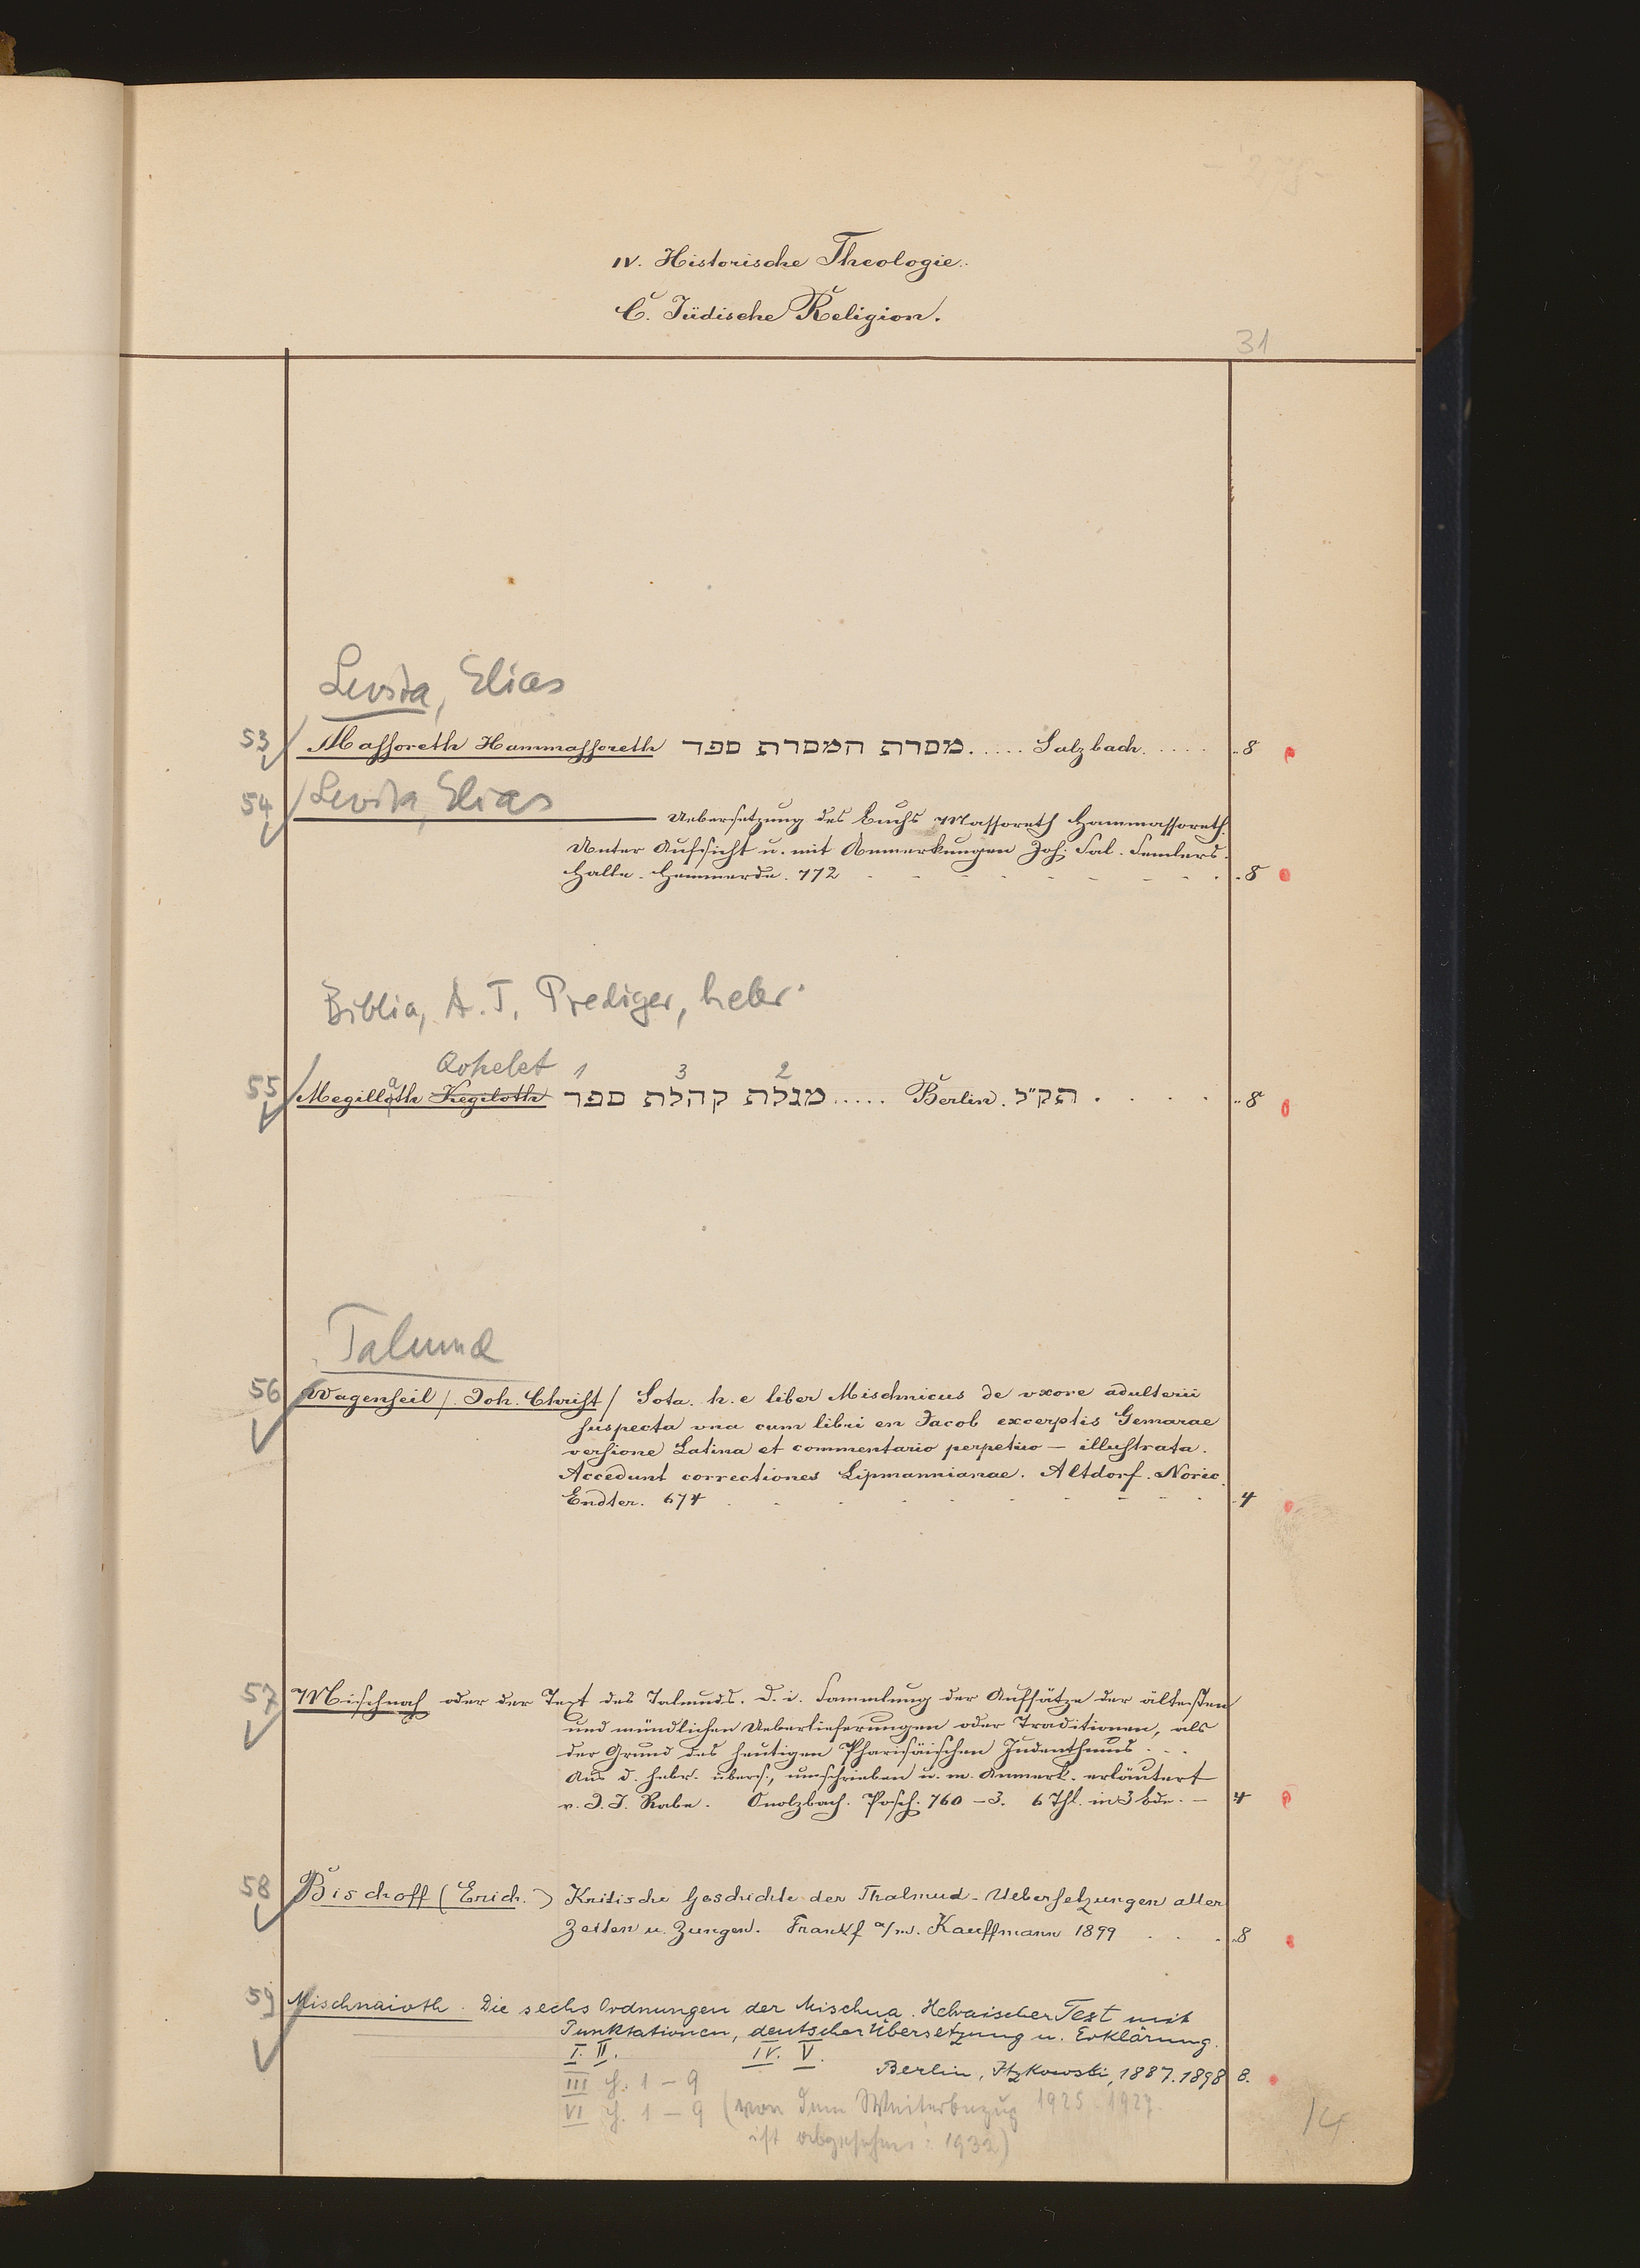 IV. Historische Theologie.
C. Jüdische Religion.
31
Levita, Elias
53 Massoreth Hammassoreth מסרת המסרת ספר ..... Sulzbach. .... 8
54 Levita, Elias
Uebersetzung des Buchs Massoreth Hammassoreth.
Unter Aufsicht u. mit Anmerkungen Joh. Sal. Semlers.
Halle. Hemmerde. 772 8
Biblia, A. T, Prediger, hebr.
Qohelet 1 3 2
55 Megillath Kegiloth מגלת קהלת ספר ..... Berlin. תק״ל . . . . 8
Talmud
56 Wagenseil /. Joh. Christ / Sota. h. e liber Mischnicus de uxore adulterii
suspecta vna cum libri en Jacob excerptis Gemarae
versione Latina et commentario perpetuo — illustrata.
Accedunt correctiones Lipmannianae. Altdorf. Noric.
Endter. 674 4
57 Mischnah oder der Text des Talmuds. D. i. Sammlung der Aufsätze der ältesten
und mündlichen Ueberlieferungen oder Traditionen, als
der Grund des heutigen Pharisäischen Judenthums . . .
Aus d. Hebr. übers., umschrieben u. m. Anmerk. erläutert
v. J. J. Rabe. Onolzbach. Posch. 760 – 3. 6 Thl. in 3 Bde. — 4
58 Bischoff (Erich.) Kritische Geschichte der Thalmud-Uebersetzungen aller
Zeiten u. Zungen. Frankf a/m. Kauffmann 1899 . . . 8
59 Mischnaioth. Die sechs Ordnungen der Mischna. Hebraischer Text mit
Punktationen, deutscher Übersetzung u. Erklärung.
I. II. IV. V.
Berlin, Itzkowski, 1887. 1898 8.
III H. 1 – 9
VI H. 1 – 9 (von dem Weiterbezug 1925. 1927.
ist abgesehen: 1932)
14